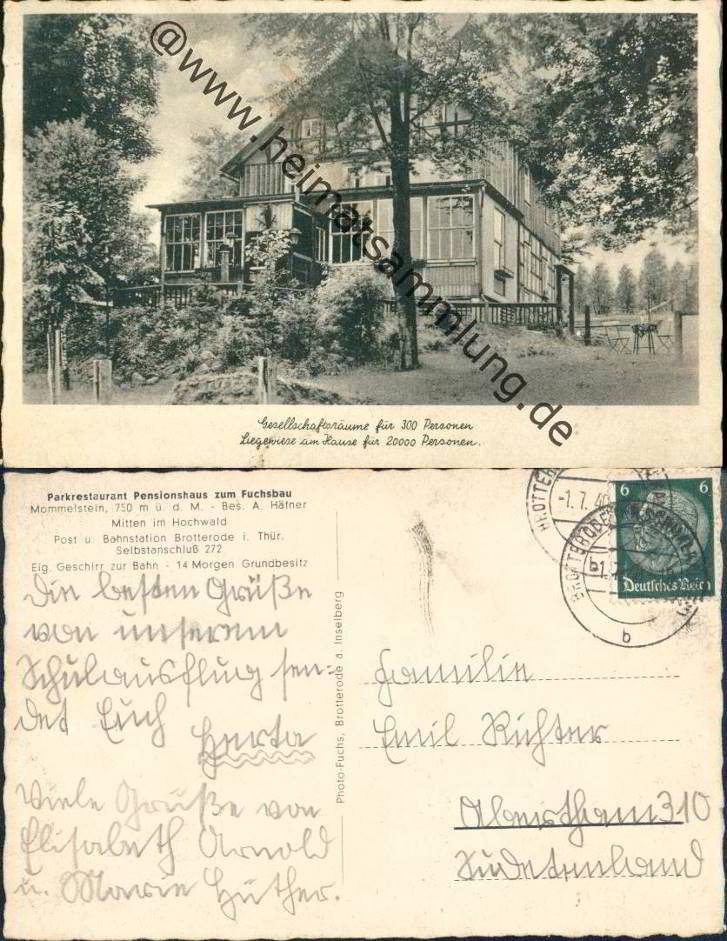 @www.heimatsammlung.de
Gesellschaftsräume für 300 Personen
Liegewiese am Hause für 20000 Personen.
Parkrestaurant Pensionshaus zum Fuchsbau
Mommelstein, 750 m ü. d. M. - Bes. A. Häfner
Mitten im Hochwald
Post u. Bahnstation Brotterode i. Thür.
Selbstanschluß 272
Eig. Geschirr zur Bahn - 14 Morgen Grundbesitz
Die besten Grüße
von unserem
Schulausflug sen-
det Euch
Herta
Viele Grüße von
Elisabeth Arnold
u. Marie Hüther.
Photo-Fuchs, Brotterode a. Inselberg
-1.7.40
6 6
Deutsches Reich
b
Familie
Emil Richter
Abertham 310
Sudetenland